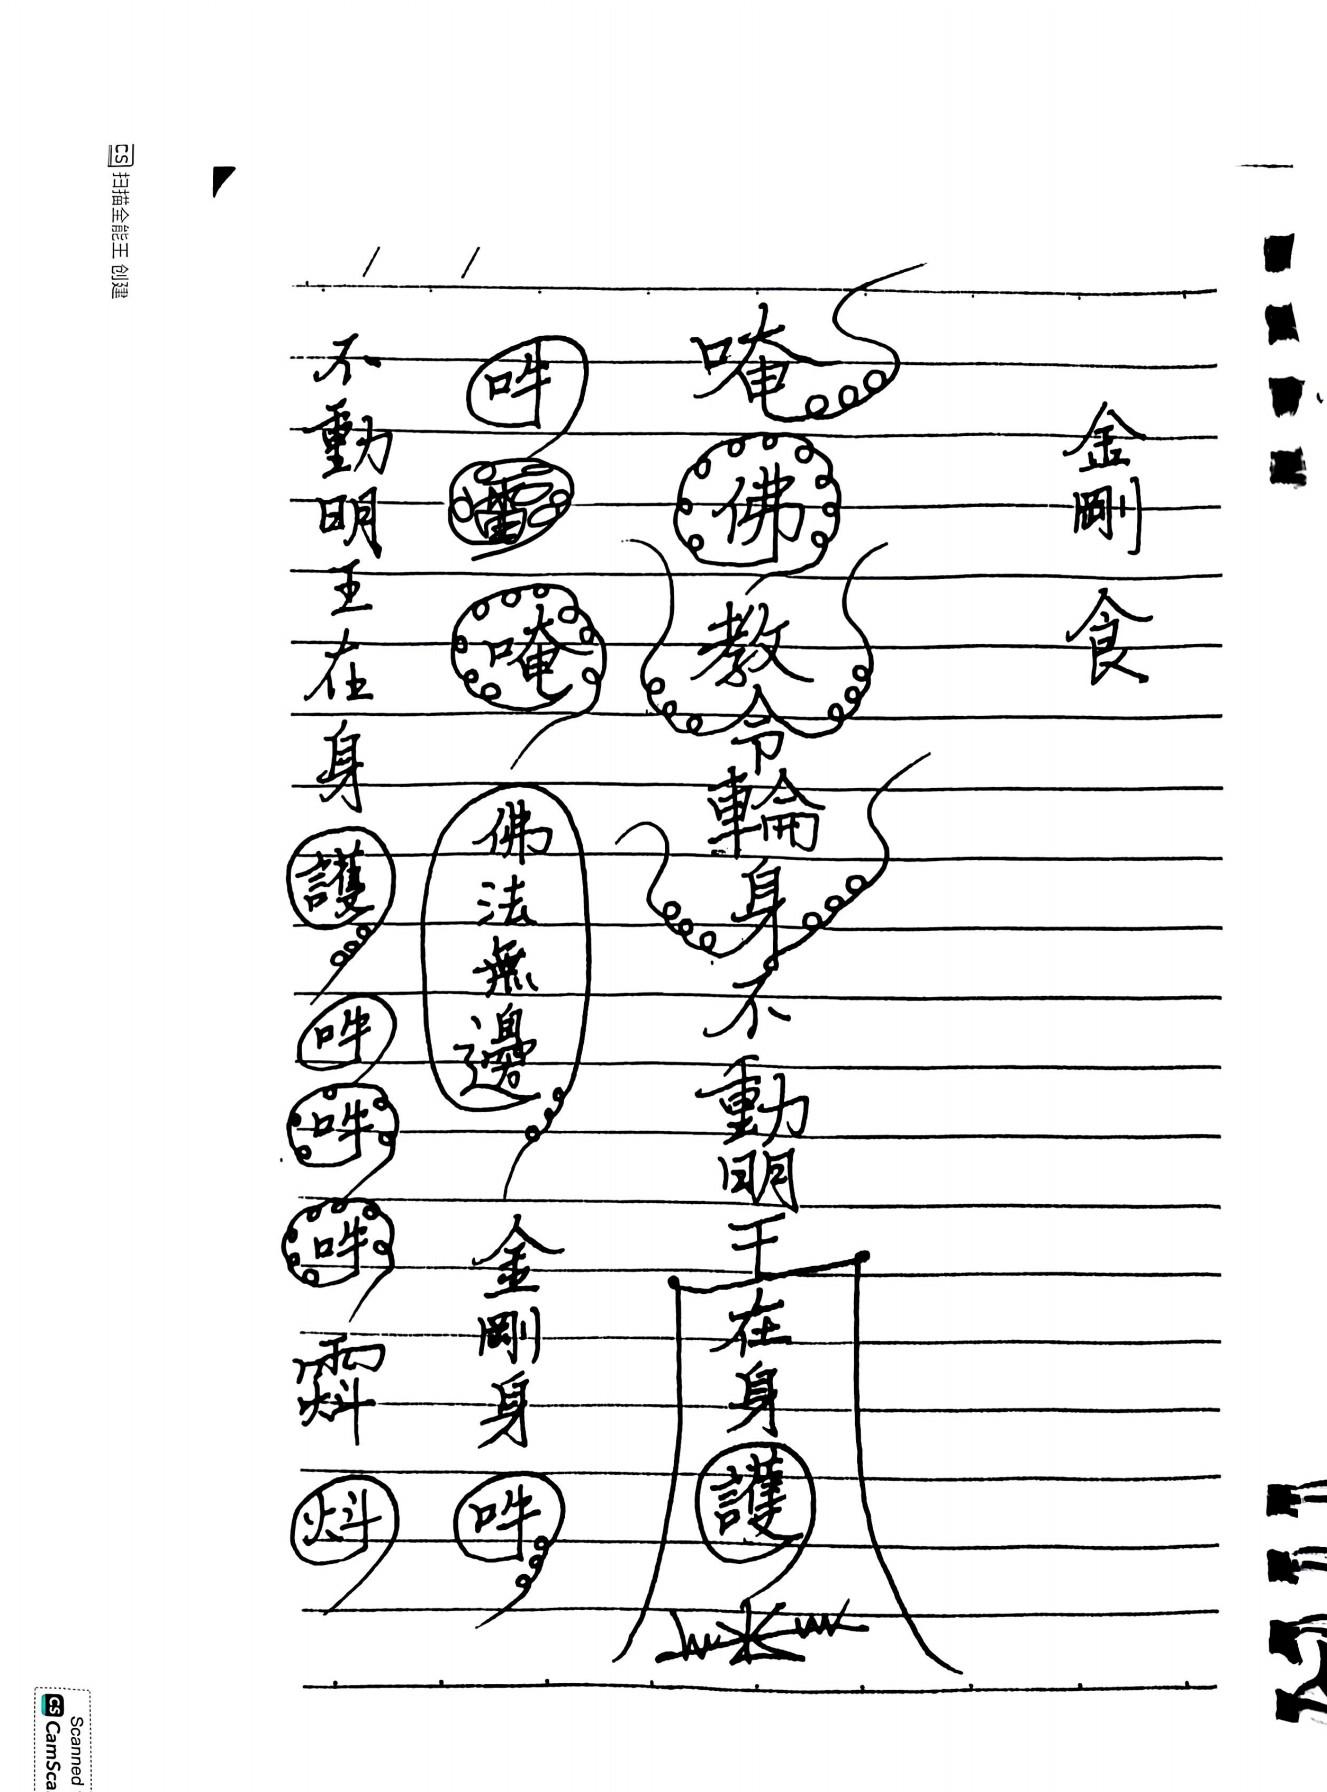 金剛 食
唵佛教令輪身不動明王在身護
吽 唵佛法無邊金剛身吽
不動明王在身護吽吽吽
CS 扫描全能王 创建
Scanned
CS CamSca